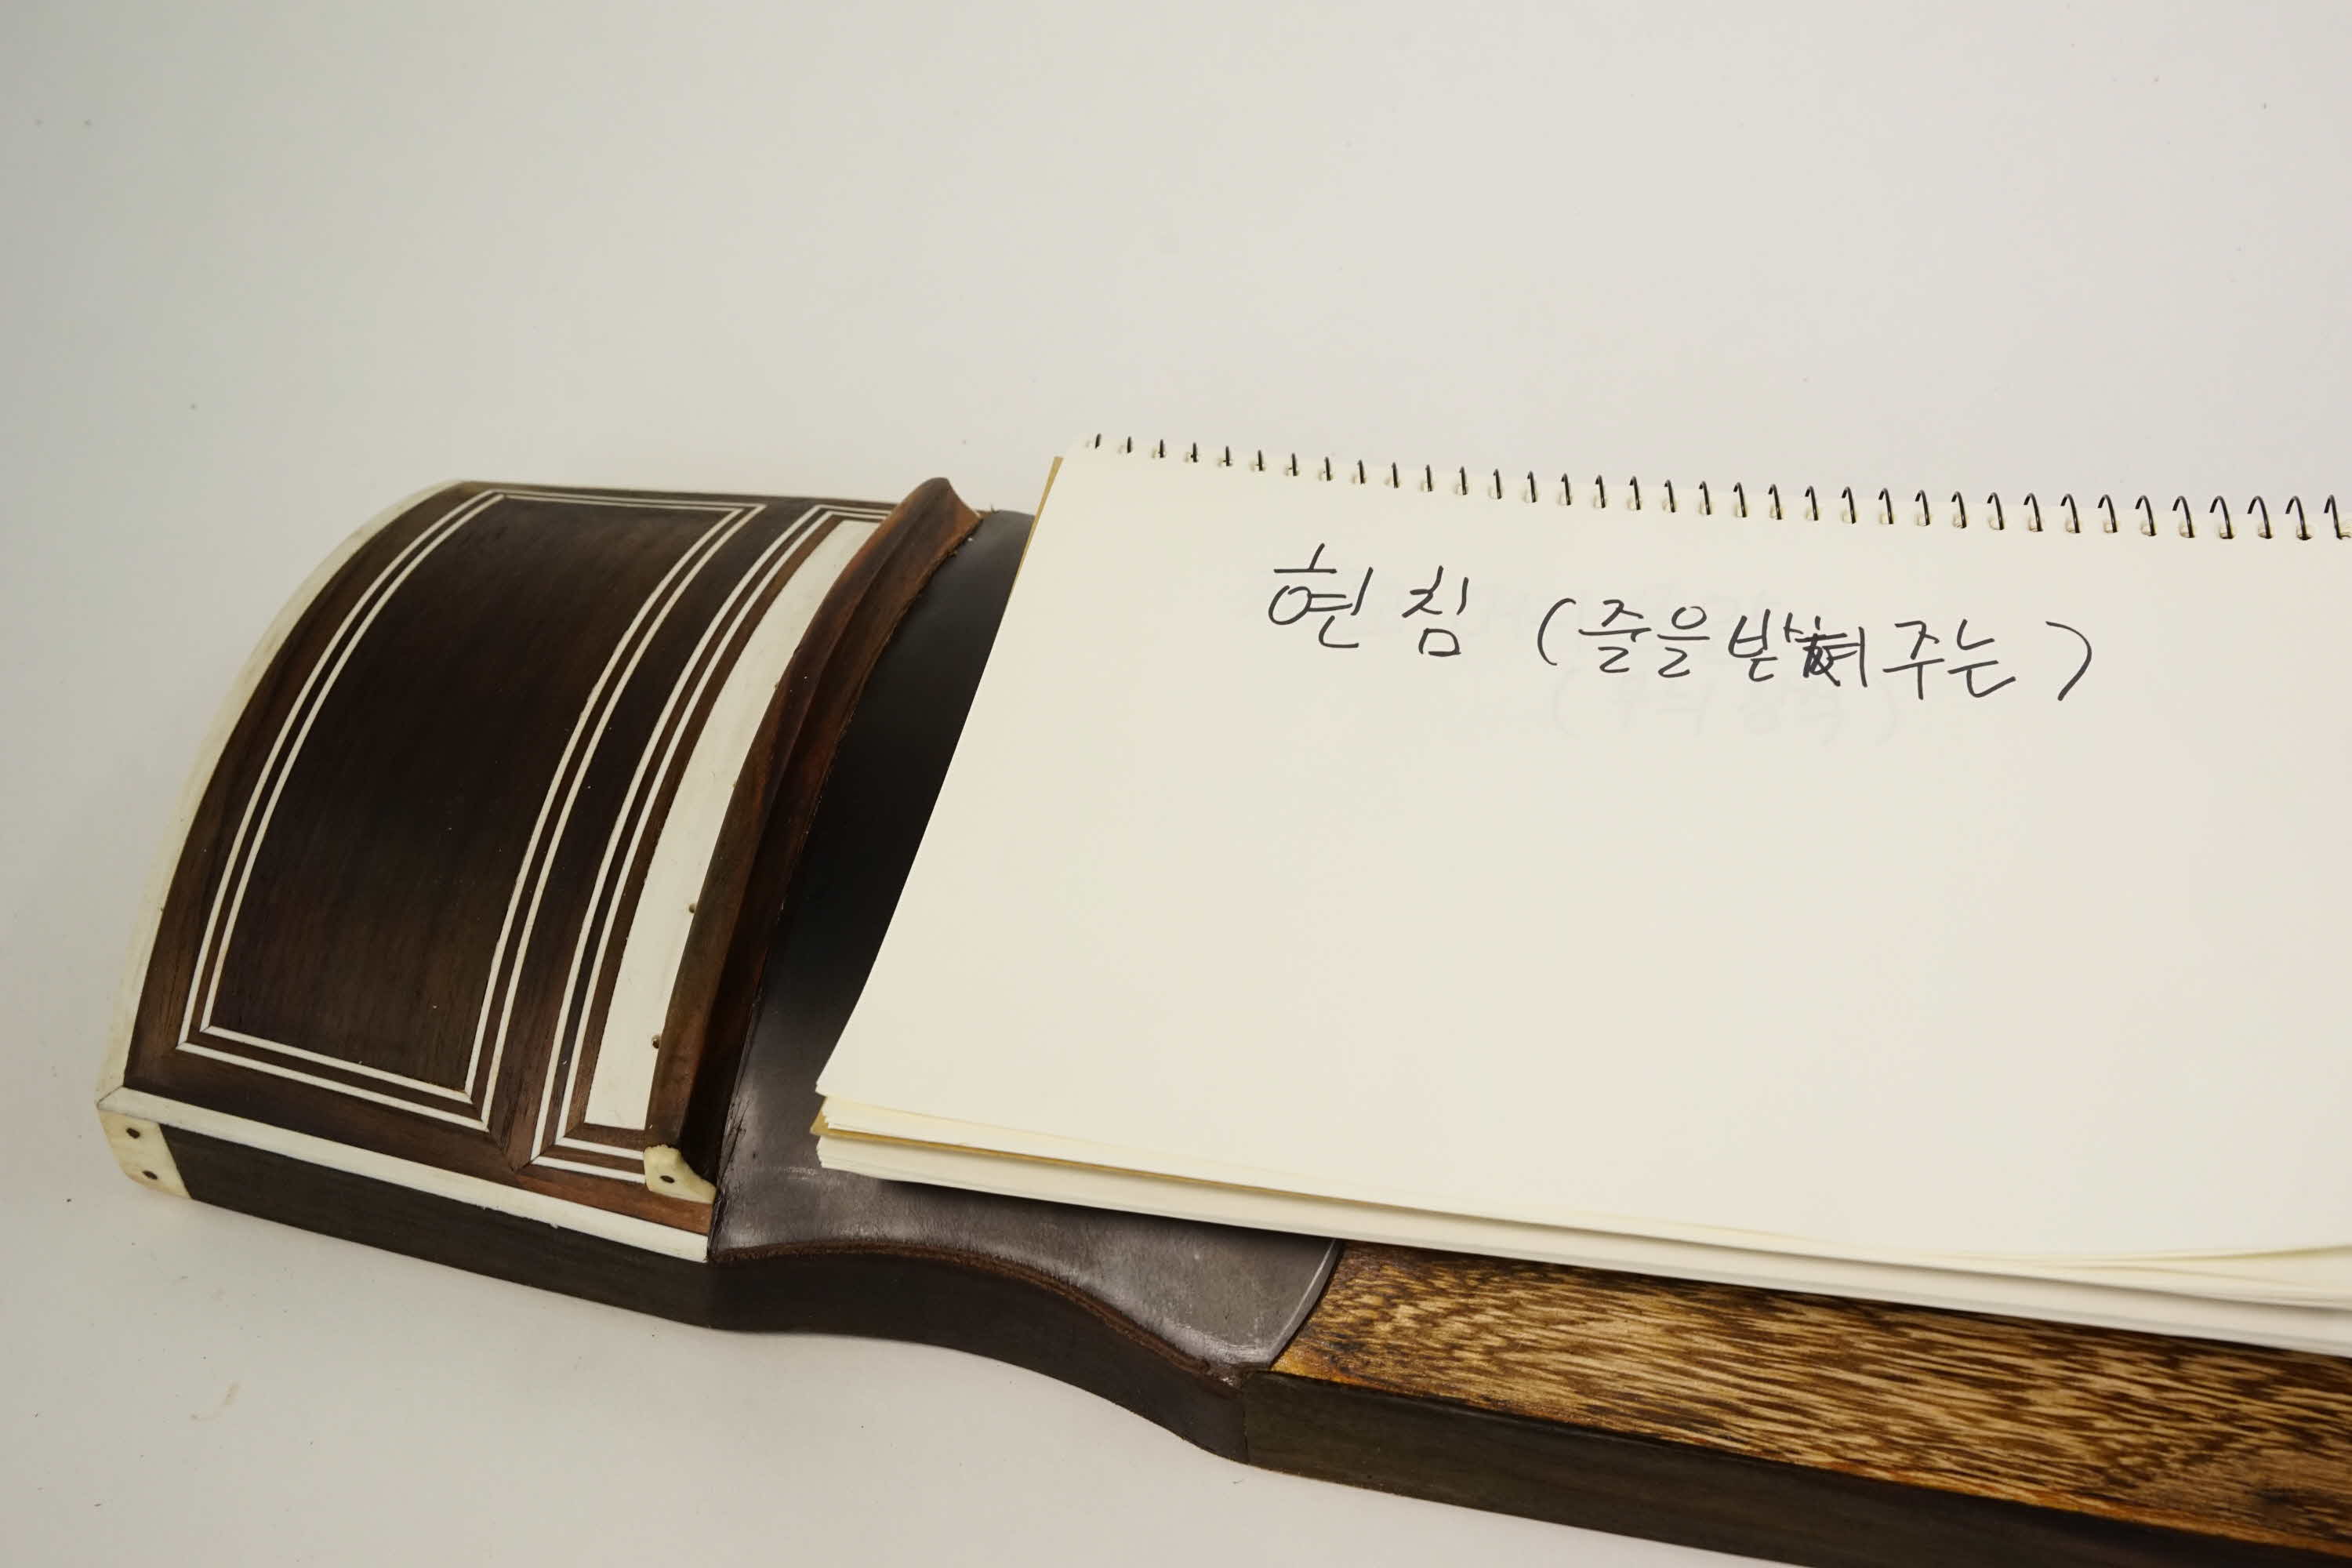 현침 (줄을 받쳐주는)